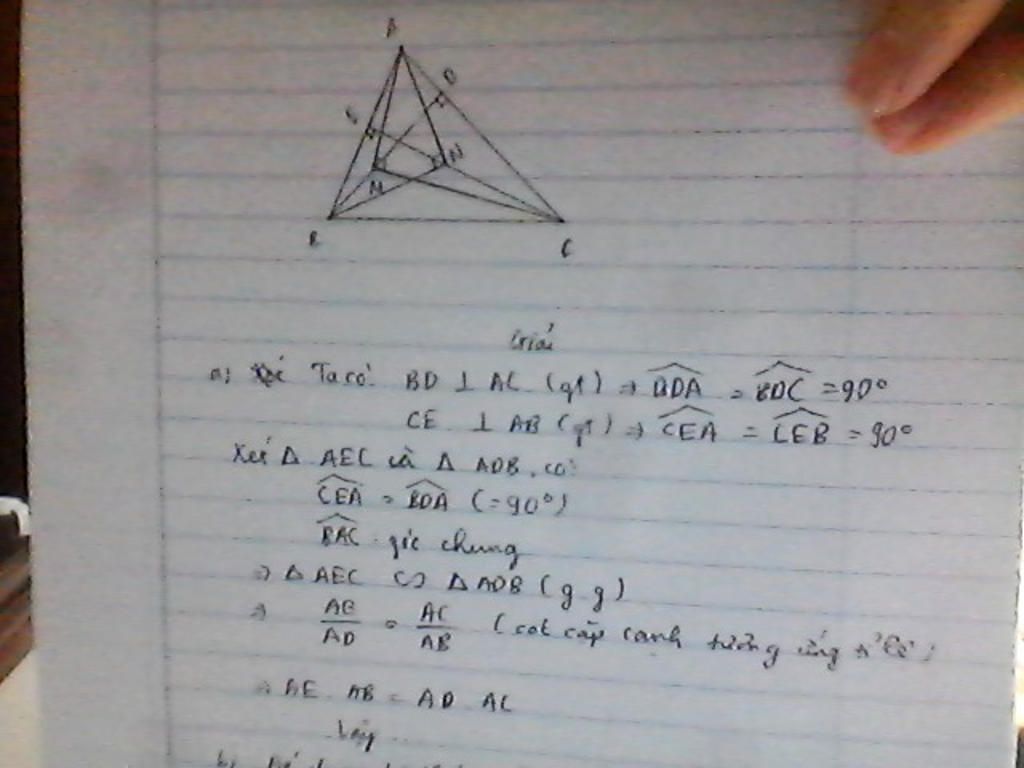 A
D
E
N
M
B
C
Giải
a) Ta có: BD ⊥ AC (gt) ⇒ BDA = BDC = 90°
CE ⊥ AB (gt) ⇒ CEA = CEB = 90°
Xét Δ AEC và Δ ADB, có:
CEA = BDA (=90°)
BAC góc chung
⇒ Δ AEC ∽ Δ ADB (g.g)
⇒ AE/AD = AC/AB (các cặp cạnh tương ứng tỉ lệ)
⇒ AE . AB = AD . AC
Vậy ...
b)